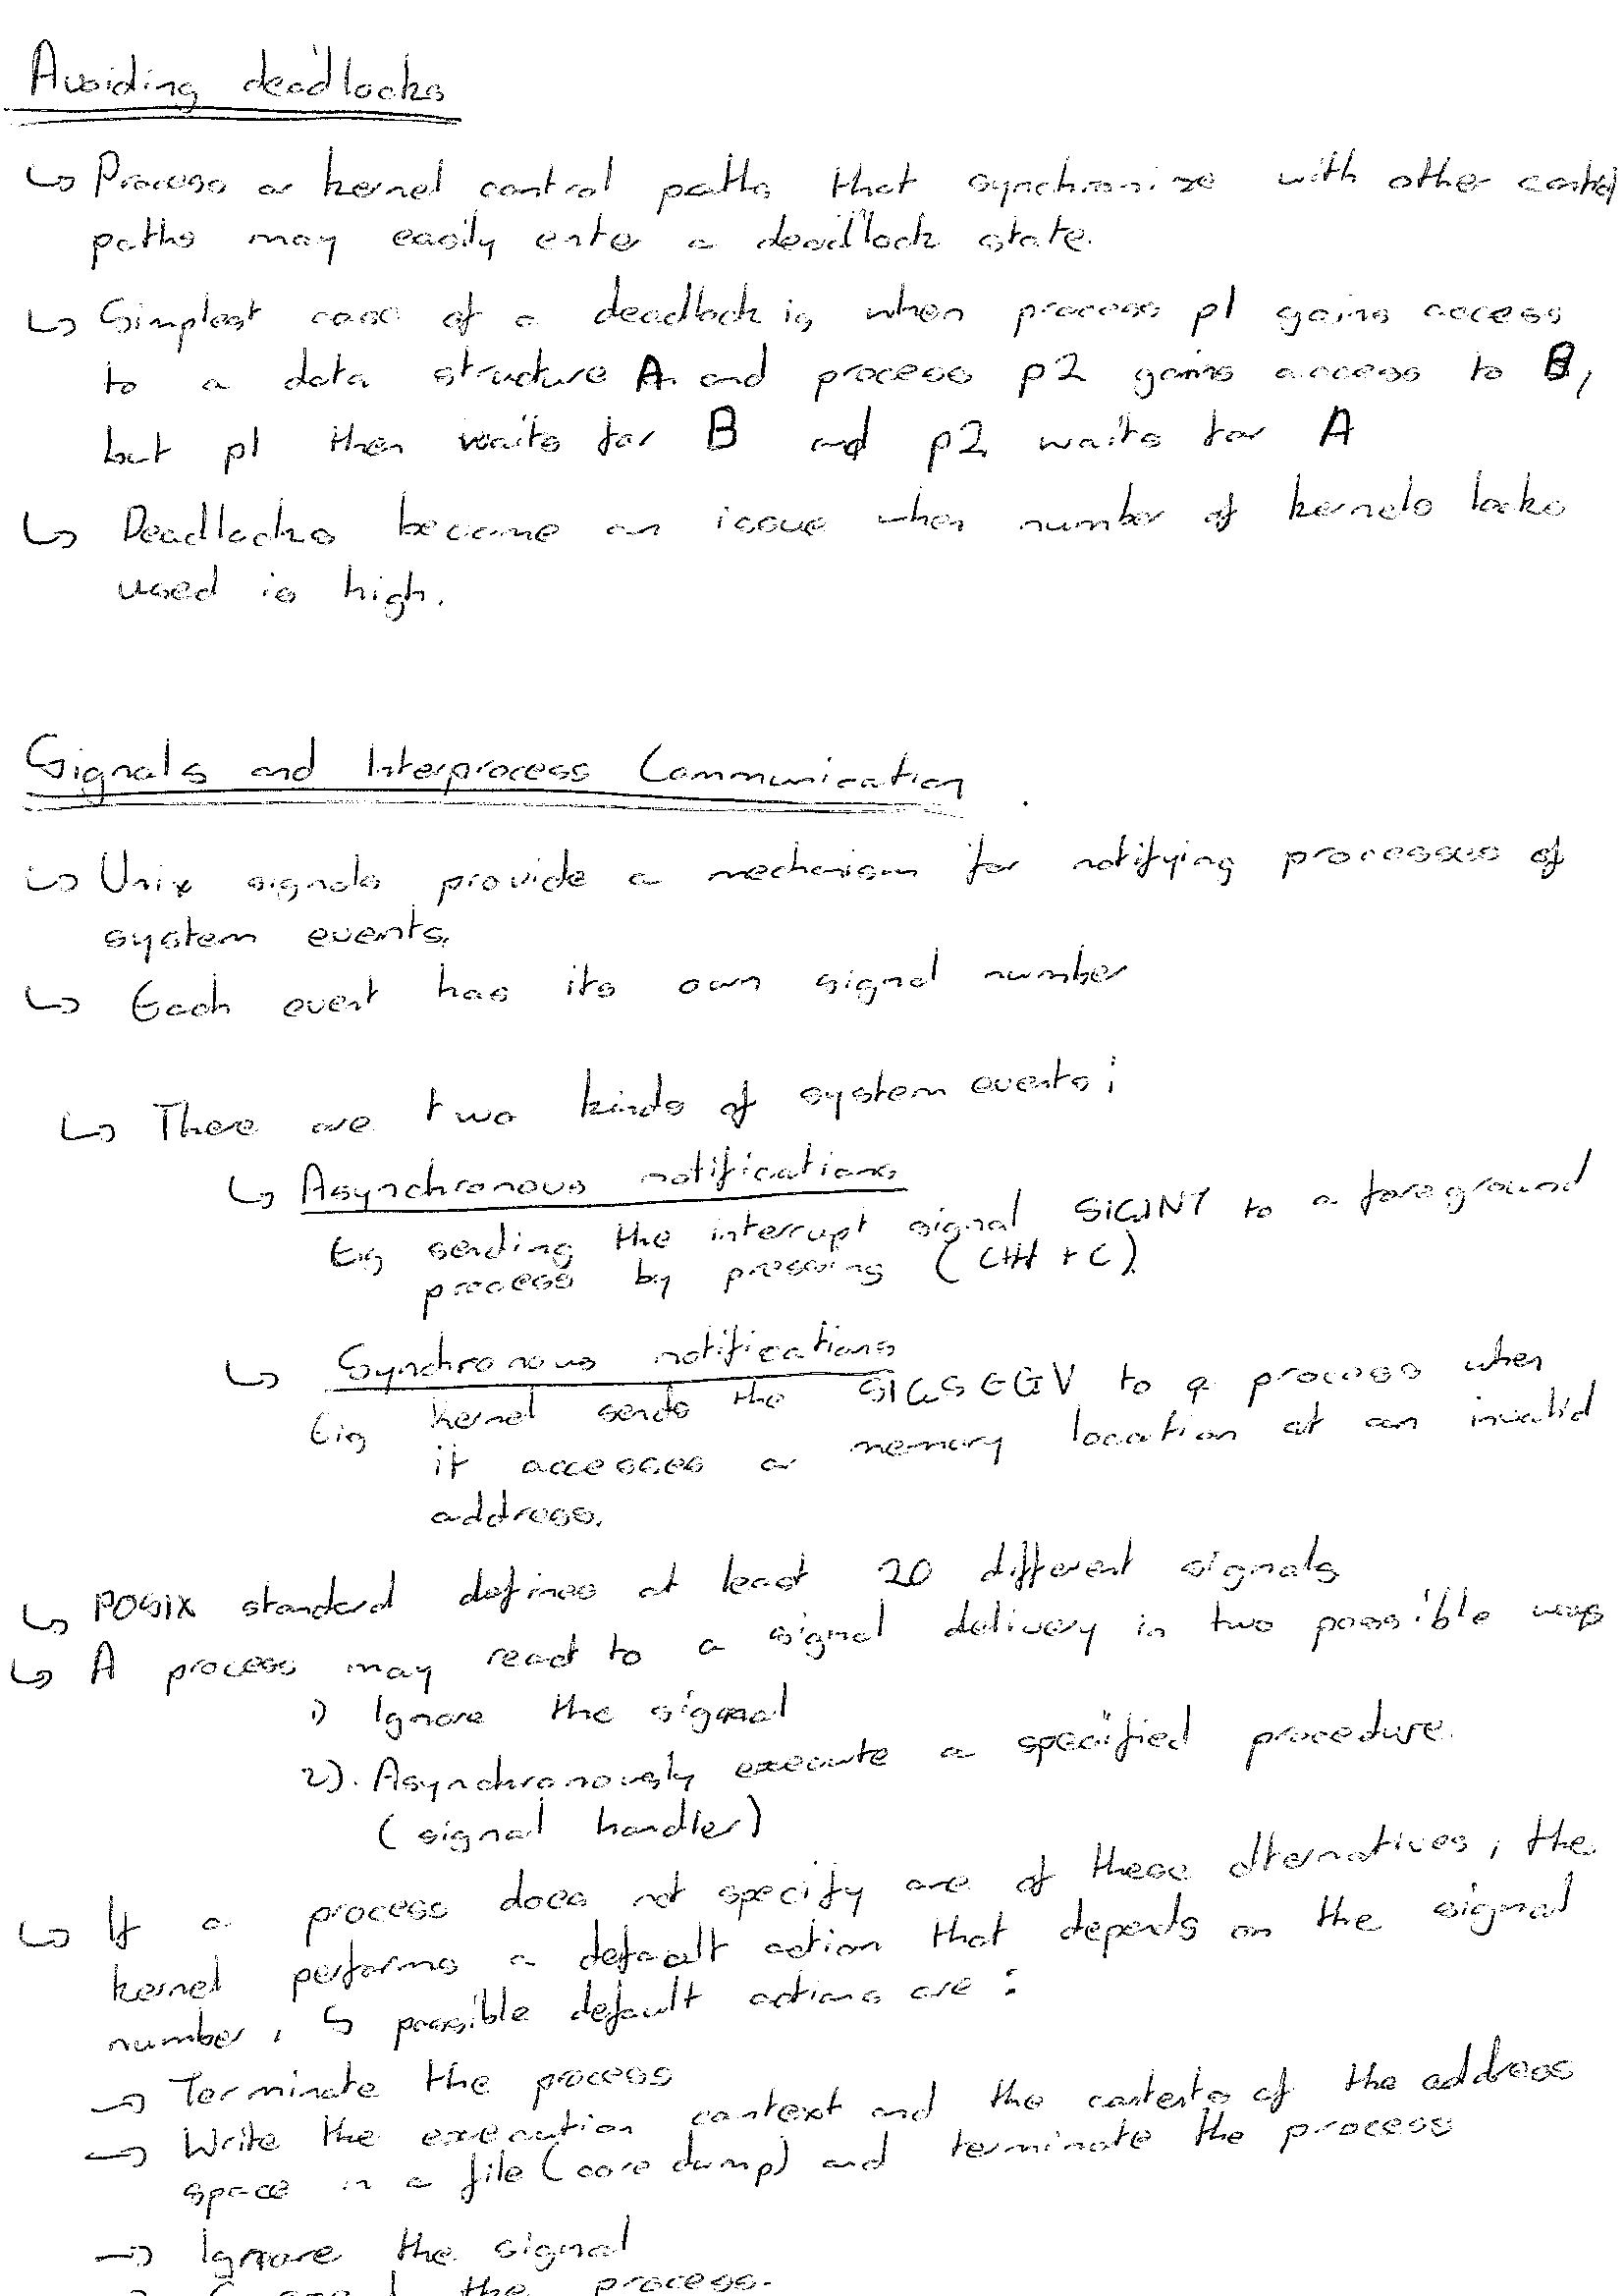 Avoiding deadlocks
↳ Process or kernel control paths that synchronize with other control
paths may easily enter a deadlock state.
↳ Simplest case of a deadlock is when process p1 gains access
to a data structure A and process p2 gains access to B,
but p1 then waits for B and p2 waits for A
↳ Deadlocks become an issue when number of kernels locks
used is high.
Signals and Interprocess Communication
↳ Unix signals provide a mechanism for notifying processes of
system events.
↳ Each event has its own signal number
↳ There are two kinds of system events;
↳ Asynchronous notifications
Eg sending the interrupt signal SIGINT to a foreground
process by pressing (Ctrl + C)
↳ Synchronous notifications
Eg kernel sends the SIGSEGV to a process when
it accesses a memory location at an invalid
address.
↳ POSIX standard defines at least 20 different signals
↳ A process may react to a signal delivery in two possible ways
1) Ignore the signal
2). Asynchronously execute a specified procedure.
(signal handler)
↳ If a process does not specify one of these alternatives, the
kernel performs a default action that depends on the signal
number, 5 possible default actions are:
→ Terminate the process
→ Write the execution context and the contents of the address
space in a file (core dump) and terminate the process
→ Ignore the signal
the process.